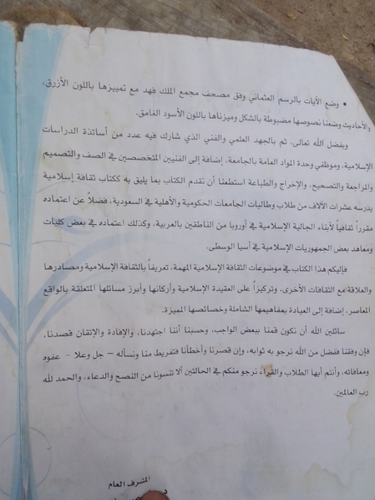 • وضع الآيات بالرسم العثماني وفق مصحف مجمع الملك فهد مع تمييزها باللون الأزرق،
والأحاديث وضعنا نصوصها مضبوطة بالشكل وميزناها باللون الأسود الغامق.
وبفضل الله تعالى، ثم بالجهد العلمي والفني الذي شارك فيه عدد من أساتذة الدراسات
الإسلامية، وموظفي وحدة المواد العامة بالجامعة، إضافة إلى الفنيين المتخصصين في الصف والتصميم
والمراجعة والتصحيح، والإخراج والطباعة استطعنا أن نقدم الكتاب بما يليق به ككتاب ثقافة إسلامية
يدرسه عشرات الآلاف من طلاب وطالبات الجامعات الحكومية والأهلية في السعودية، فضلاً عن اعتماده
مقرراً ثقافياً لأبناء الجالية الإسلامية في أوروبا من الناطقين بالعربية، وكذلك اعتماده في بعض كليات
ومعاهد بعض الجمهوريات الإسلامية في آسيا الوسطى.
فإليكم هذا الكتاب في موضوعات الثقافة الإسلامية المهمة، تعريفاً بالثقافة الإسلامية ومصادرها
والعلاقة مع الثقافات الأخرى، وتركيزاً على العقيدة الإسلامية وأركانها وأبرز مسائلها المتعلقة بالواقع
المعاصر، إضافة إلى العبادة بمفاهيمها الشاملة وخصائصها المميزة.
سائلين الله أن نكون قمنا ببعض الواجب، وحسبنا أننا اجتهدنا، والإفادة والإتقان قصدنا،
فإن وفقنا ففضل من الله نرجو به ثوابه، وإن قصرنا وأخطأنا فتفريط منا ونسأله – جل وعلا – عفوه
ومعافاته، وأنتم أيها الطلاب والقراء نرجو منكم في الحالتين ألا تنسونا من النصح والدعاء، والحمد لله
رب العالمين.
المشرف العام